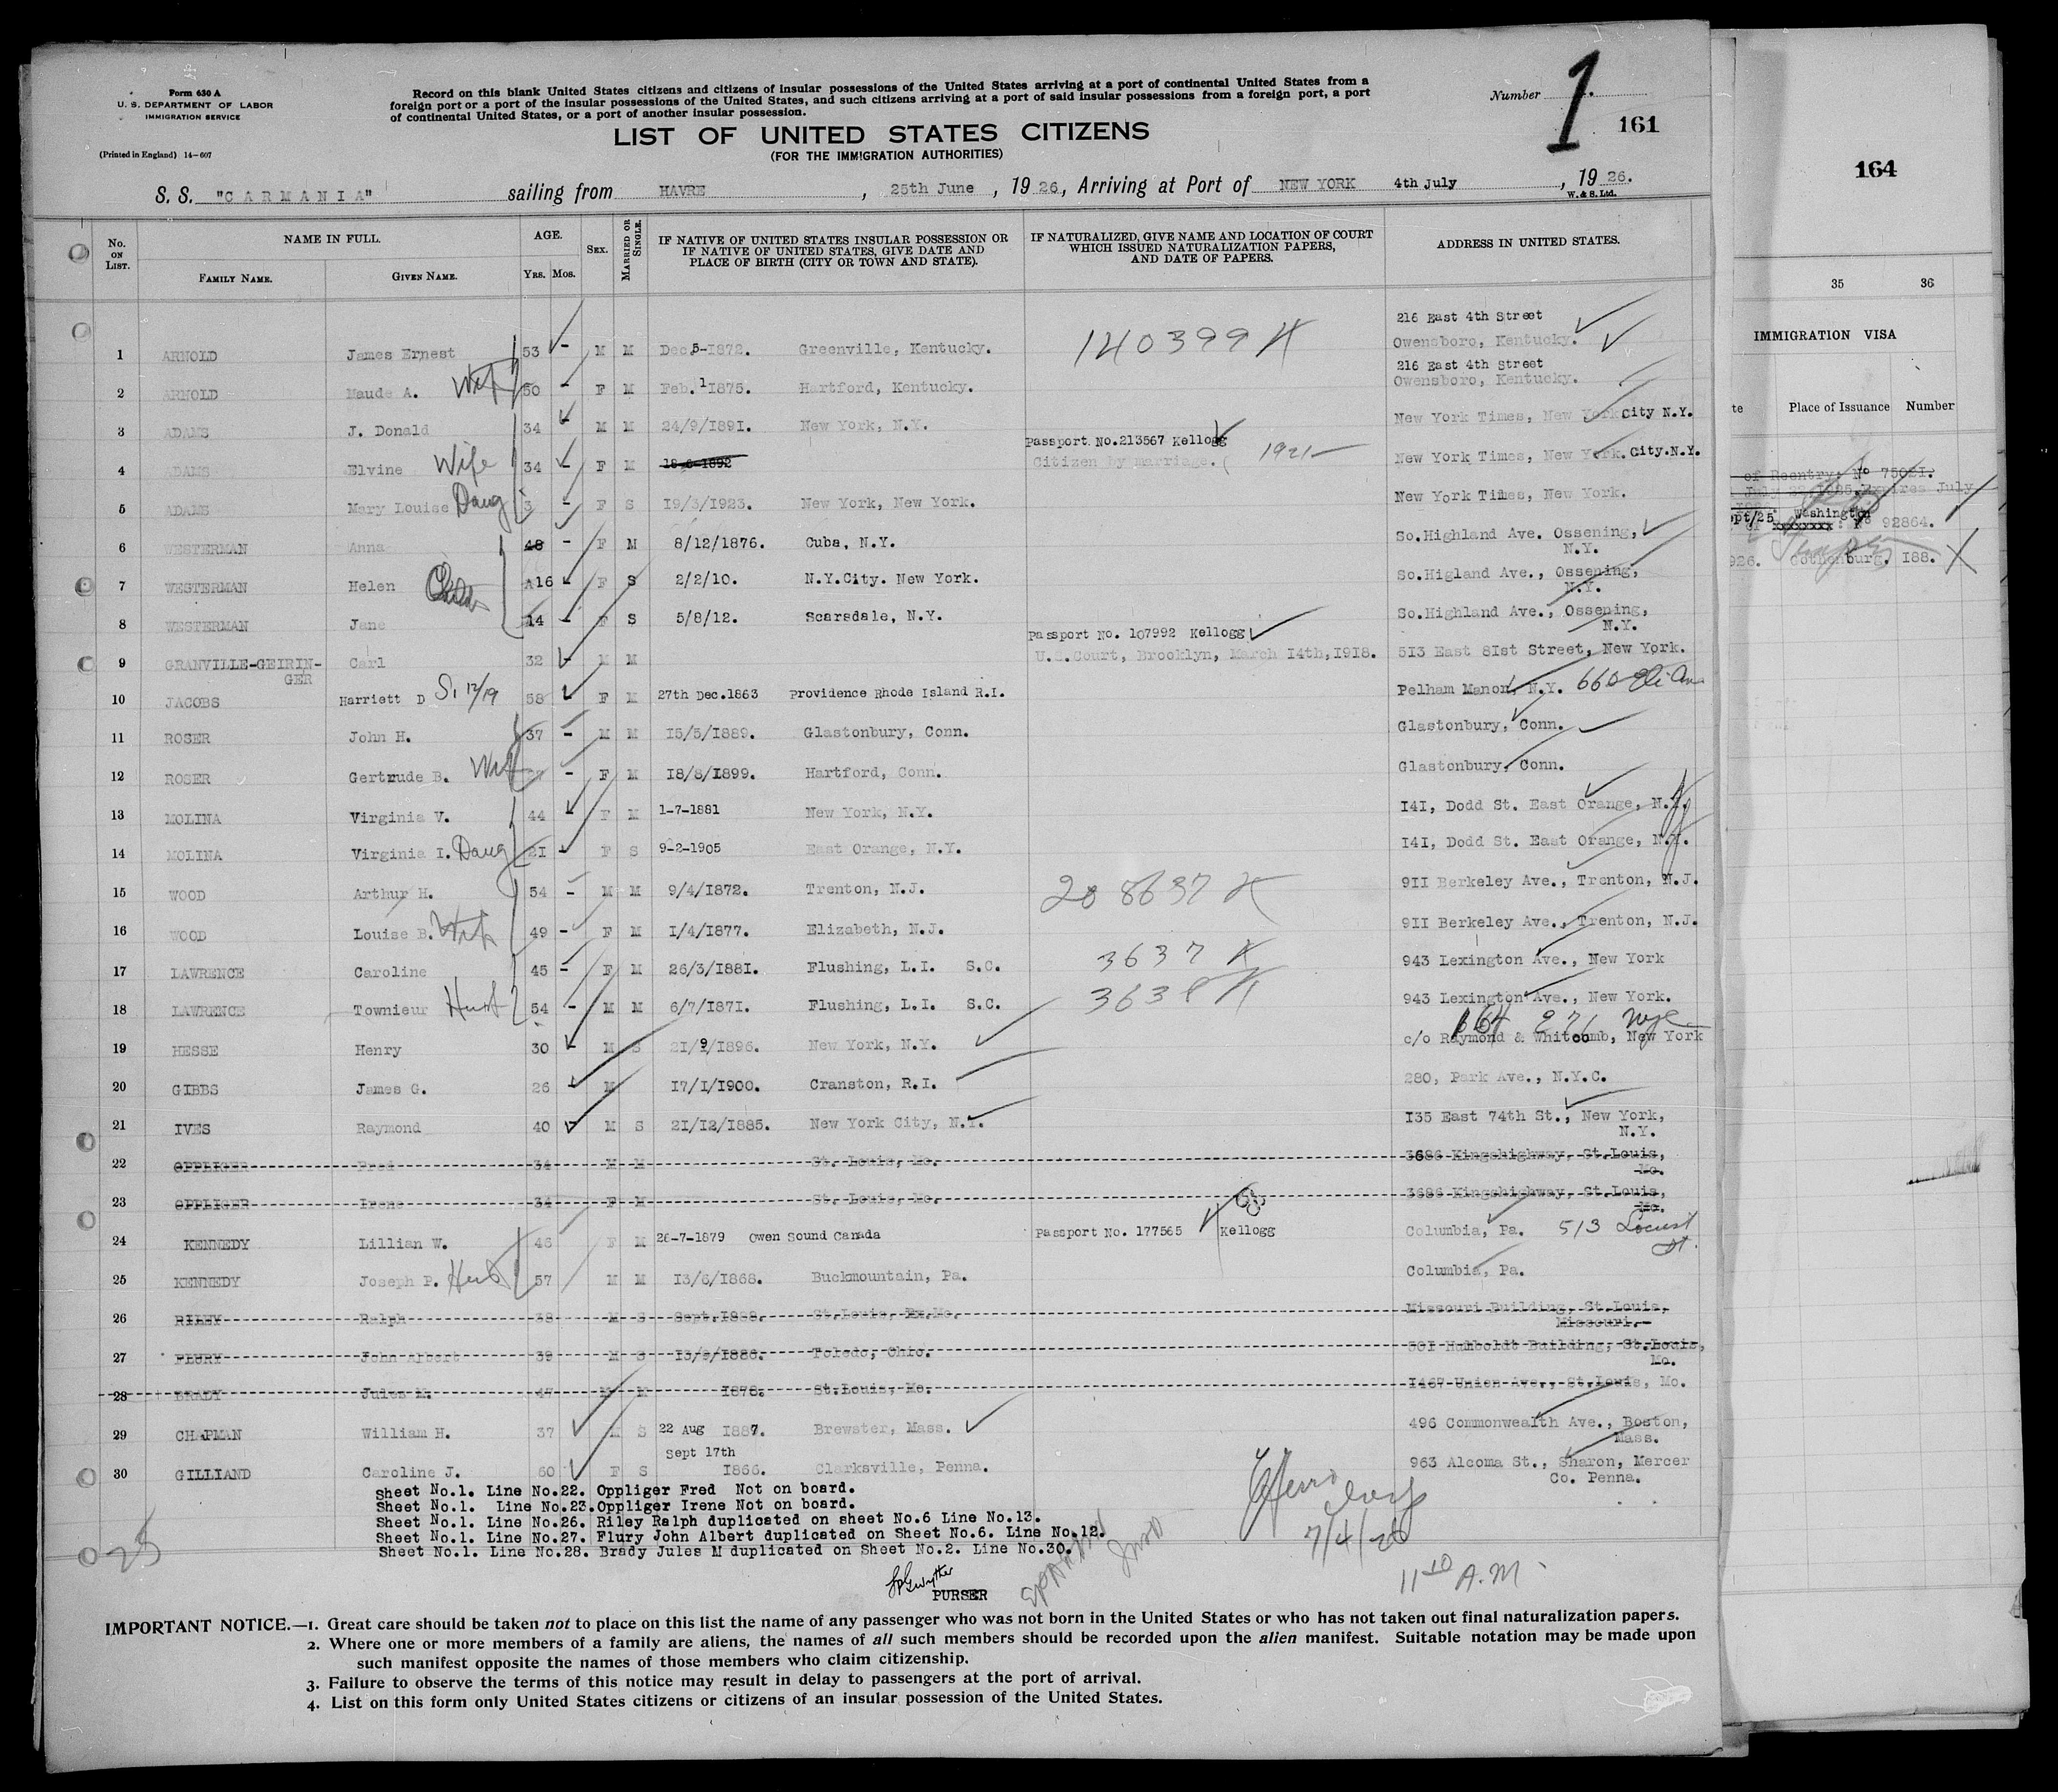 Form 630 A
U. S. DEPARTMENT OF LABOR
IMMIGRATION SERVICE
(Printed in England) 14—607
Record on this blank United States citizens and citizens of insular possessions of the United States arriving at a port of continental United States from a
foreign port or a port of the insular possessions of the United States, and such citizens arriving at a port of said insular possessions from a foreign port, a port
of continental United States, or a port of another insular possession.
Number 1
161
LIST OF UNITED STATES CITIZENS
(FOR THE IMMIGRATION AUTHORITIES)
S. S. "CARMANIA" sailing from HAVRE, 25th June, 1926, Arriving at Port of NEW YORK 4th July, 1926.
W. & S. Ltd.
No. ON LIST. NAME IN FULL. FAMILY NAME. GIVEN NAME. AGE. YRS. MOS. SEX. MARRIED OR SINGLE. IF NATIVE OF UNITED STATES INSULAR POSSESSION OR IF NATIVE OF UNITED STATES, GIVE DATE AND PLACE OF BIRTH (CITY OR TOWN AND STATE). IF NATURALIZED, GIVE NAME AND LOCATION OF COURT WHICH ISSUED NATURALIZATION PAPERS, AND DATE OF PAPERS. ADDRESS IN UNITED STATES.
216 East 4th Street
1 ARNOLD James Ernest 53 - M M Dec.5-1872. Greenville, Kentucky. 140399 Owensboro, Kentucky.
216 East 4th Street
2 ARNOLD Maude A. Wife 50 - F M Feb. 1 1875. Hartford, Kentucky. Owensboro, Kentucky.
3 ADAMS J. Donald 34 - M M 24/9/1891. New York, N.Y. New York Times, New York City N.Y.
Passport No.213567 Kellogg
4 ADAMS Elvine Wife 34 - F M 18-6-1892 Citizen by marriage. 1921 New York Times, New York. City.N.Y.
5 ADAMS Mary Louise Daug 3 - F S 19/3/1923. New York, New York. New York Times, New York.
6 WESTERMAN Anna 48 - F M 8/12/1876. Cuba, N.Y. So.Highland Ave. Ossening,
N.Y.
7 WESTERMAN Helen A16 F S 2/2/10. N.Y.City. New York. So.Higland Ave., Ossening,
N.Y.
8 WESTERMAN Jane 14 - F S 5/8/12. Scarsdale, N.Y. So.Highland Ave., Ossening,
N.Y.
Passport No. 107992 Kellogg
9 GRANVILLE-GEIRIN-
GER Carl 32 - M M U.S.Court, Brooklyn, March 14th,1918. 513 East 81st Street, New York.
10 JACOBS Harriett D 58 F M 27th Dec.1863 Providence Rhode Island R.I. Pelham Manor, N.Y. 660
11 ROSER John H. 37 - M M 15/5/1889. Glastonbury, Conn. Glastonbury, Conn.
12 ROSER Gertrude B. Wife - F M 18/8/1899. Hartford, Conn. Glastonbury, Conn.
13 MOLINA Virginia V. 44 F M 1-7-1881 New York, N.Y. 141, Dodd St. East Orange, N.Y.
14 MOLINA Virginia I. Daug 21 - F S 9-2-1905 East Orange, N.Y. 141, Dodd St. East Orange, N.Y.
15 WOOD Arthur H. 54 - M M 9/4/1872. Trenton, N.J. 208637 911 Berkeley Ave., Trenton, N.J.
16 WOOD Louise B. Wife 49 - F M 1/4/1877. Elizabeth, N.J. 911 Berkeley Ave., Trenton, N.J.
17 LAWRENCE Caroline 45 - F M 26/3/1881. Flushing, L.I. S.C. 3637 943 Lexington Ave., New York
18 LAWRENCE Townieur Husb 54 - M M 6/7/1871. Flushing, L.I. S.C. 3638 943 Lexington Ave., New York.
19 HESSE Henry 30 - M S 21/9/1896. New York, N.Y. c/o Raymond & Whitcomb, New York
20 GIBBS James G. 26 - M 17/1/1900. Cranston, R.I. 280, Park Ave., N.Y.C.
21 IVES Raymond 40 M S 21/12/1885. New York City, N.Y. 135 East 74th St., New York,
N.Y.
22 OPPLIGER Fred 34 M M St. Louis, Mo. 3686 Kingshighway, St.Louis,
Mo.
23 OPPLIGER Irene 34 F M St. Louis, Mo. 3686 Kingshighway, St.Louis,
Mo.
24 KENNEDY Lillian W. 46 F M 26-7-1879 Owen Sound Canada Passport No. 177565 Kellogg Columbia, Pa. 513 Locust
St.
25 KENNEDY Joseph P. Husb 57 M M 13/6/1868. Buckmountain, Pa. Columbia, Pa.
26 RILEY Ralph 38 M S Sept.1888. St.Louis, Mo. Missouri Building, St.Louis,
Missouri.
27 FLURY John Albert 39 M S 13/9/1886. Toledo, Ohio. 501 Humboldt Building, St.Louis,
Mo.
28 BRADY Jules M. 47 M M 1878. St.Louis, Mo. 1467 Union Ave., St.Louis, Mo.
29 CHAPMAN William H. 37 M S 22 Aug 1887. Brewster, Mass. 496 Commonwealth Ave., Boston,
Mass.
Sept 17th
30 GILLIAND Caroline J. 60 F S 1866. Clarksville, Penna. 963 Alcoma St., Sharon, Mercer
Co. Penna.
Sheet No.1. Line No.22. Oppliger Fred Not on board.
Sheet No.1. Line No.23. Oppliger Irene Not on board.
Sheet No.1. Line No.26. Riley Ralph duplicated on sheet No.6 Line No.13.
Sheet No.1. Line No.27. Flury John Albert duplicated on Sheet No.6. Line No.12.
Sheet No.1. Line No.28. Brady Jules M duplicated on Sheet No.2. Line No.30.
25
7/4/26
11 10 A.M
PURSER
IMPORTANT NOTICE.—1. Great care should be taken not to place on this list the name of any passenger who was not born in the United States or who has not taken out final naturalization papers.
2. Where one or more members of a family are aliens, the names of all such members should be recorded upon the alien manifest. Suitable notation may be made upon
such manifest opposite the names of those members who claim citizenship.
3. Failure to observe the terms of this notice may result in delay to passengers at the port of arrival.
4. List on this form only United States citizens or citizens of an insular possession of the United States.
164
35 36
IMMIGRATION VISA
te Place of Issuance Number
of Reentry; No 75021.
July
Washington
92864.
926. Gothenburg. 188.